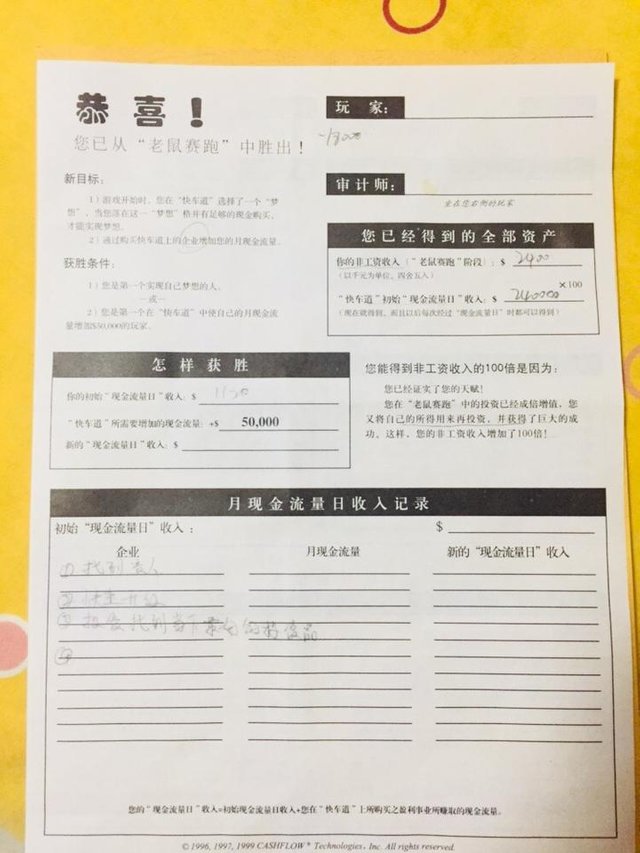 恭喜！
您已从“老鼠赛跑”中胜出！
玩 家：
审计师：
坐在您右侧的玩家
新目标：
1）游戏开始时，您在“快车道”选择了一个“梦
想”，当您落在这一“梦想”格并有足够的现金购买，
才能实现梦想。
2）通过购买快车道上的企业增加您的月现金流量。
获胜条件：
1）您是第一个实现自己梦想的人。
—或—
2）您是第一个在“快车道”中使自己的月现金流
量增加$50,000的玩家。
您已经得到的全部资产
你的非工资收入（“老鼠赛跑”阶段）：$ 2400
（以千元为单位，四舍五入）
×100
“快车道”初始“现金流量日”收入：$ 240000
（现在就得到，而且以后每次经过“现金流量日”时都可以得到）
怎样获胜
你的初始“现金流量日”收入：$
“快车道”所需要增加的现金流量：+$ 50,000
新的“现金流量日”收入：$
您能得到非工资收入的100倍是因为：
您已经证实了您的天赋！
您在“老鼠赛跑”中的投资已经成倍增值，您
又将自己的所得用来再投资，并获得了巨大的成
功。这样，您的非工资收入增加了100倍！
月现金流量日收入记录
初始“现金流量日”收入： $
企业 月现金流量 新的“现金流量日”收入
① 找到
②
③ 投资找到
④
您的“现金流量日”收入=初始现金流量日收入+您在“快车道”上所购买之盈利事业所赚取的现金流量。
© 1996, 1997, 1999 CASHFLOW® Technologies, Inc. All rights reserved.